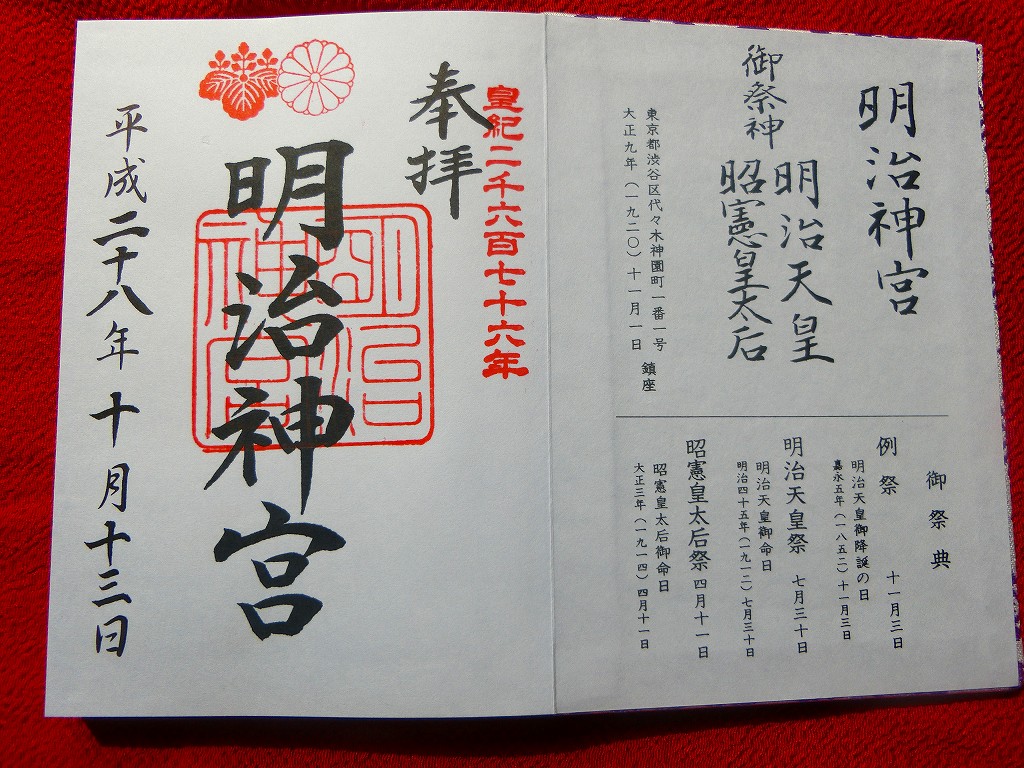 明治神宮
御祭神
明治天皇
昭憲皇太后
東京都渋谷区代々木神園町一番一号
大正九年(一九二〇)十一月一日 鎮座
御祭典
例祭 十一月三日
明治天皇御降誕の日
嘉永五年(一八五二)十一月三日
明治天皇祭 七月三十日
明治天皇御命日
明治四十五年(一九一二)七月三十日
昭憲皇太后祭 四月十一日
昭憲皇太后御命日
大正三年(一九一四)四月十一日
皇紀二千六百七十六年
奉拝
明治神宮
明治
神宮
平成二十八年十月十三日